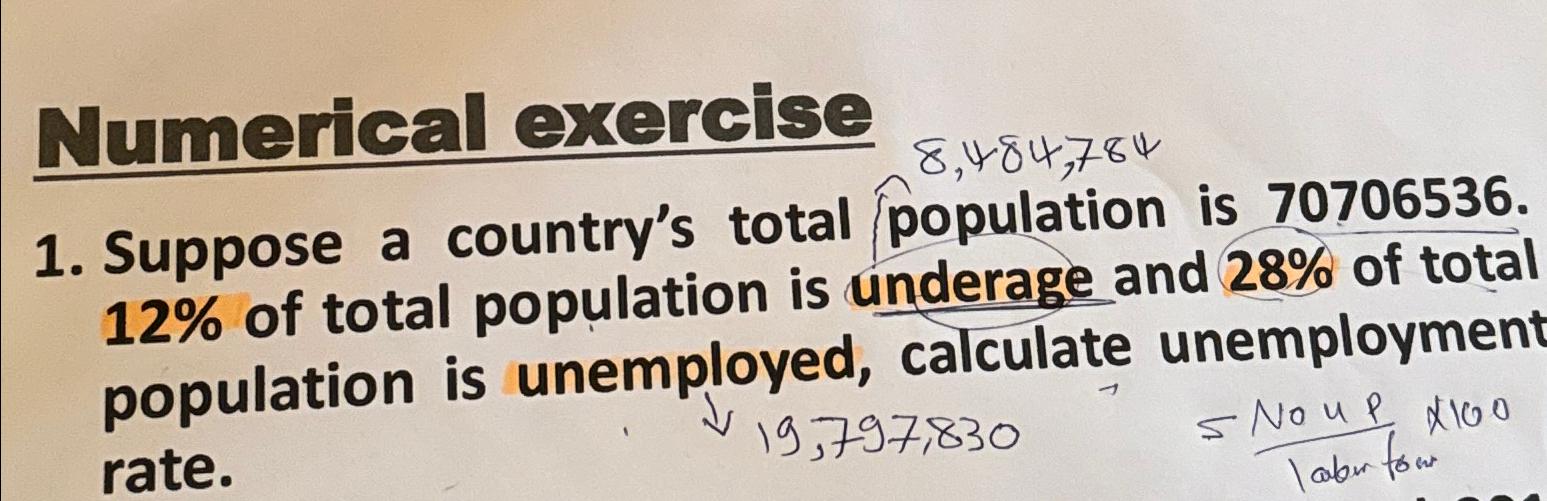 Numerical exercise
8,484,784
1. Suppose a country's total population is 70706536.
12% of total population is underage and 28% of total
population is unemployed, calculate unemployment
19,797,830
No u P x100
labur
rate.